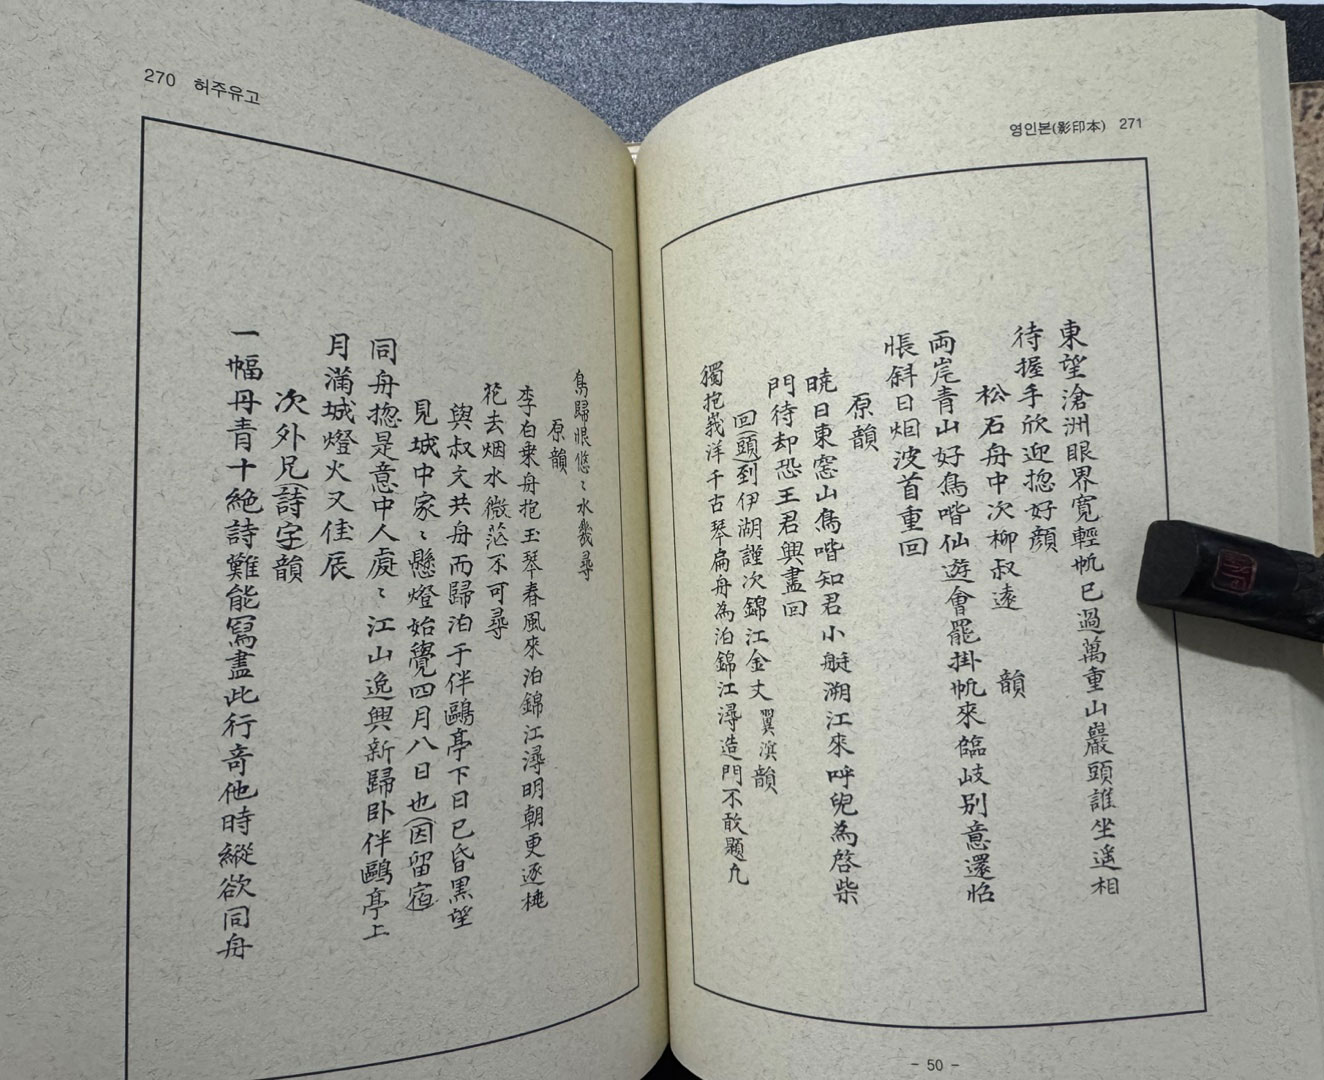 영인본(影印本) 271
東望滄洲眼界寬輕帆已過萬重山巖頭誰坐遥相
待握手欣迎惚好顔
松石舟中次柳叔遠 韻
兩崖青山好鳥喈仙遊會罷掛帆來臨岐別意還怊
悵斜日烟波首重回
原韻
曉日東窓山鳥喈知君小艇溯江來呼兒為啓柴
門待却恐王君興盡回
回(頭)到伊湖謹次錦江金丈 翼濱 韻
獨抱峩洋千古琴扁舟為泊錦江潯造門不敢題凡
- 50 -
270 허주유고
鳥歸恨悠〻水幾尋
原韻
李白乗舟抱玉琴春風來泊錦江潯明朝更逐桃
花去烟水微茫不可尋
與叔文共舟而歸泊于伴鷗亭下日已昏黒望
見城中家〻懸燈始覺四月八日也(因留宿)
同舟惚是意中人處〻江山逸興新歸卧伴鷗亭上
月滿城燈火又佳辰
次外兄(詩字)韻
一幅丹青十絶詩難能寫盡此行奇他時縱欲同舟